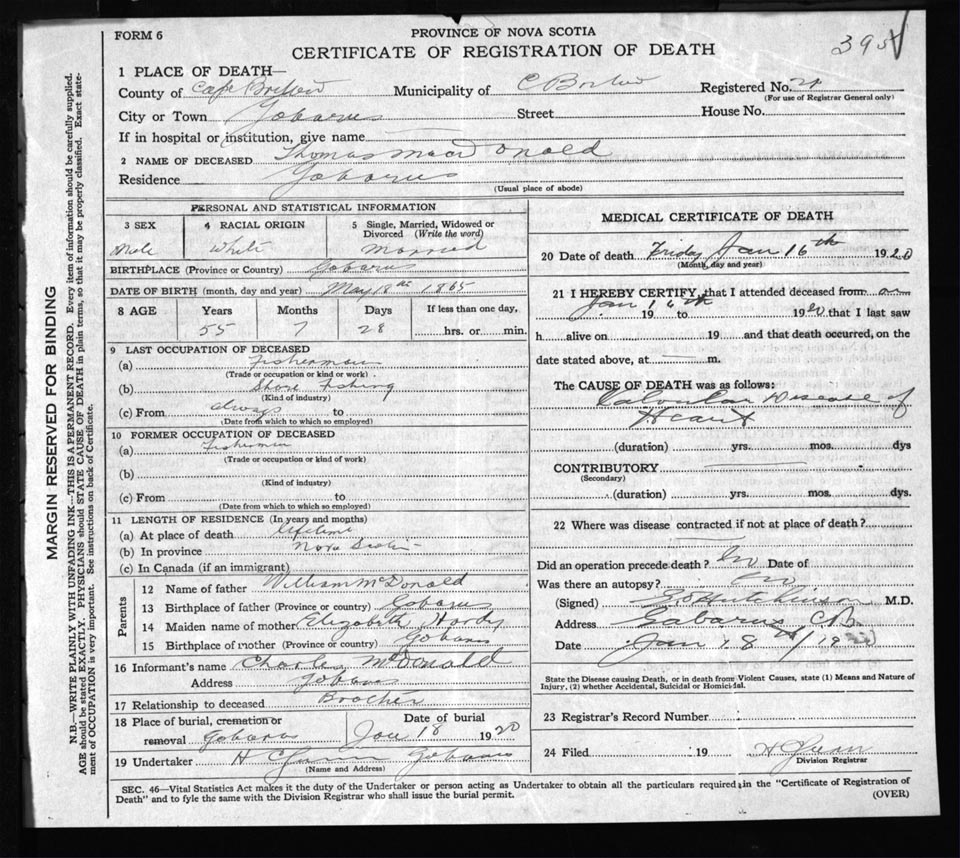 FORM 6
PROVINCE OF NOVA SCOTIA
CERTIFICATE OF REGISTRATION OF DEATH
1 PLACE OF DEATH—
County of Cape Breton Municipality of C Breton Registered No.
(For use of Registrar General only)
City or Town Gabarus Street House No.
If in hospital or institution, give name
2 NAME OF DECEASED Thomas MacDonald
Residence Gabarus
(Usual place of abode)
PERSONAL AND STATISTICAL INFORMATION
3 SEX 4 RACIAL ORIGIN 5 Single, Married, Widowed or Divorced (Write the word)
Male White Married
BIRTHPLACE (Province or Country) Gabarus
DATE OF BIRTH (month, day and year) May 18th 1865
8 AGE Years Months Days If less than one day,
55 7 28 hrs. or min.
9 LAST OCCUPATION OF DECEASED
(a) Fisherman
(Trade or occupation or kind or work)
(b) Shore Fishing
(Kind of industry)
(c) From always to
(Date from which to which so employed)
10 FORMER OCCUPATION OF DECEASED
(a) Fisherman
(Trade or occupation or kind of work)
(b)
(Kind of industry)
(c) From to
(Date from which to which so employed)
11 LENGTH OF RESIDENCE (In years and months)
(a) At place of death lifetime
(b) In province Nova Scotia
(c) In Canada (if an immigrant)
Parents
12 Name of father William McDonald
13 Birthplace of father (Province or country) Gabarus
14 Maiden name of mother Elizabeth Hardy
15 Birthplace of mother (Province or country) Gabarus
16 Informant's name Charles McDonald
Address Gabarus
17 Relationship to deceased Brother
18 Place of burial, cremation or removal Gabarus
Date of burial Jan 18 1920
19 Undertaker H Gabarus
(Name and Address)
MEDICAL CERTIFICATE OF DEATH
20 Date of death Friday Jan 16th 1920
(Month, day and year)
21 I HEREBY CERTIFY, that I attended deceased from on
Jan 16th 19 to 1920 that I last saw
h alive on 19 and that death occurred, on the
date stated above, at m.
The CAUSE OF DEATH was as follows:
Valvular Disease of
Heart
(duration) yrs. mos. dys
CONTRIBUTORY
(Secondary)
(duration) yrs. mos. dys.
22 Where was disease contracted if not at place of death?
Did an operation precede death? No Date of
Was there an autopsy? No
(Signed) Hutchinson M.D.
Address Gabarus CB
Date Jan 18th/19
State the Disease causing Death, or in death from Violent Causes, state (1) Means and Nature of
Injury, (2) whether Accidental, Suicidal or Homicidal.
23 Registrar's Record Number
24 Filed 19
Division Registrar
SEC. 46—Vital Statistics Act makes it the duty of the Undertaker or person acting as Undertaker to obtain all the particulars required in the "Certificate of Registration of
Death" and to fyle the same with the Division Registrar who shall issue the burial permit.
(OVER)
MARGIN RESERVED FOR BINDING
N.B.—WRITE PLAINLY WITH UNFADING INK—THIS IS A PERMANENT RECORD. Every item of information should be carefully supplied.
AGE should be stated EXACTLY. PHYSICIANS should STATE CAUSE OF DEATH in plain terms, so that it may be properly classified. Exact state-
ment of OCCUPATION is very important. See instructions on back of Certificate.